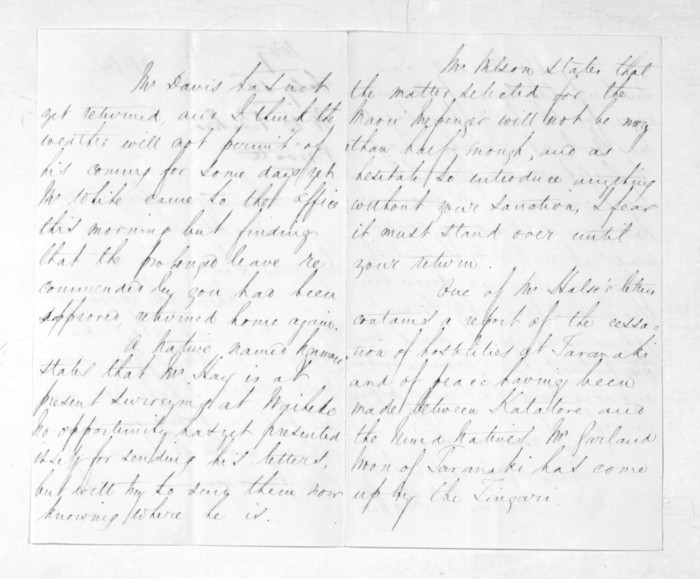 Mr Davis has not
yet returned, and I think the
weather will not permit of
his coming for some days yet
Mr White came to the office
this morning but finding
that the prolonged leave re
commended by you had been
approved, returned home again.
A Native named
states that Mr. Hay is at
present surveying at Waiheke
no opportunity has yet presented
itself for sending his letters,
but will try to send them now
knowing where he is.
Mr Wilson states that
the matter selected for the
Maori Messenger will not be more
than half enough, and as I
hesitate to introduce anything
without your sanction, I fear
it must stand over until
your return.
One of Mr Halse's letters
contains a report of the cessa-
tion of hostilities at Taranaki
and of peace having been
made between Katatore and
the Natives. Mr Garland
Woon of Taranaki has come
up by the Zingari.